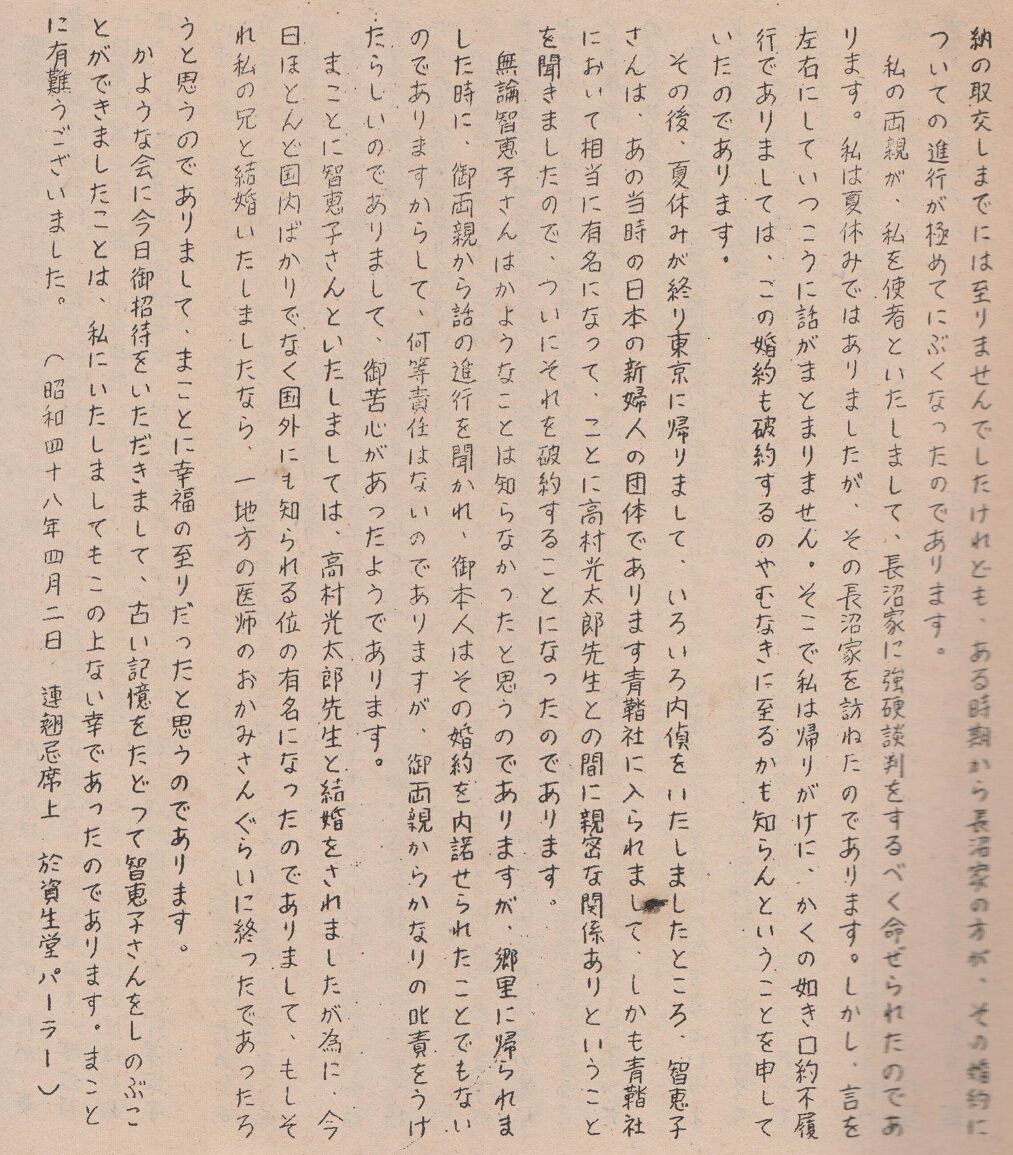 納の取交しまでには至りませんでしたけれども、ある時期から長沼家の方が、その婚約に
ついての進行が極めてにぶくなったのであります。
私の両親が、私を使者といたしまして、長沼家に強硬談判をするべく命ぜられたのであ
ります。私は夏休みではありましたが、その長沼家を訪ねたのであります。しかし、言を
左右にしていつこうに話がまとまりません。そこで私は帰りがけに、かくの如き口約不履
行でありましては、この婚約も破約するのやむなきに至るかも知らんということを申して
いたのであります。
その後、夏休みが終り東京に帰りまして、いろいろ内偵をいたしましたところ、智恵子
さんは、あの当時の日本の新婦人の団体であります青鞜社に入られまして、しかも青鞜社
において相当に有名になって、ことに高村光太郎先生との間に親密な関係ありということ
を聞きましたので、ついにそれを破約することになったのであります。
無論智恵子さんはかようなことは知らなかったと思うのでありますが、郷里に帰られま
した時に、御両親から話の進行を聞かれ、御本人はその婚約を内諾せられたことでもない
のでありますからして、何等責任はないのでありますが、御両親からかなりの叱責をうけ
たらしいのでありまして、御苦心があったようであります。
まことに智恵子さんといたしましては、高村光太郎先生と結婚をされましたが為に、今
日ほとんど国内ばかりでなく国外にも知られる位の有名になったのでありまして、もしそ
れ私の兄と結婚いたしましたなら、一地方の医師のおかみさんぐらいに終ったであったろ
うと思うのでありまして、まことに幸福の至りだったと思うのであります。
かような会に今日御招待をいただきまして、古い記憶をたどって智恵子さんをしのぶこ
とができましたことは、私にいたしましてもこの上ない幸であったのであります。まこと
に有難うございました。　（昭和四十八年四月二日　連翹忌席上　於資生堂パーラー）